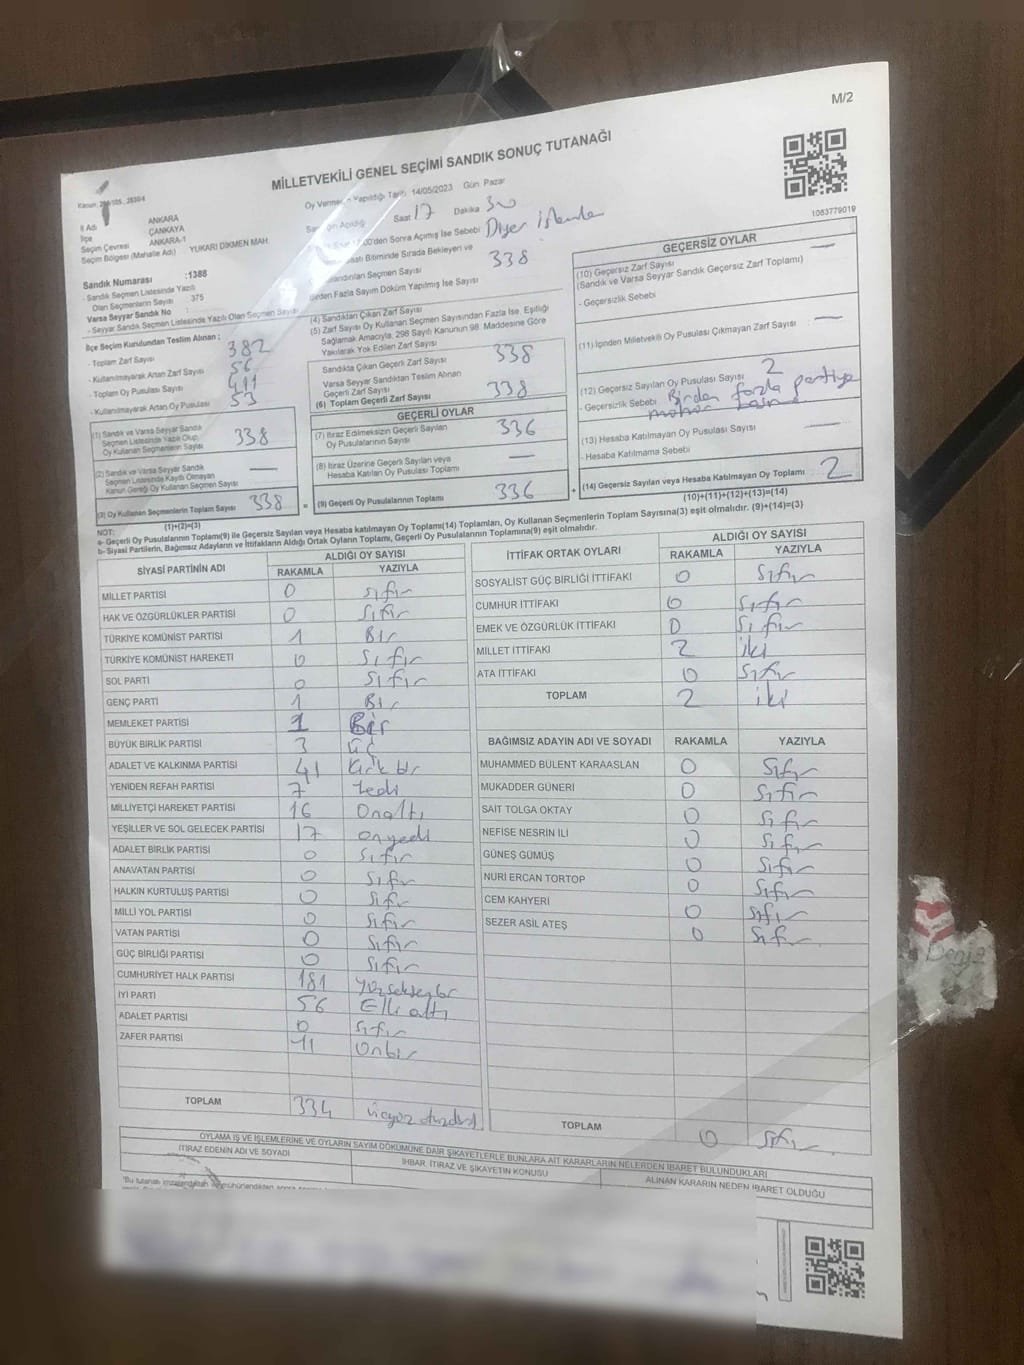 M/2
MİLLETVEKİLİ GENEL SEÇİMİ SANDIK SONUÇ TUTANAĞI
Oy Vermenin Yapıldığı Tarih 14/05/2023 Gün Pazar
1083779019
İl Adı ANKARA
İlçe ÇANKAYA
Seçim Çevresi ANKARA-1
Seçim Bölgesi (Mahalle Adı) YUKARI DİKMEN MAH
Saat 17 Dakika 30
'den Sonra Açılmış İse Sebebi Diğer işlemler
Bitiminde Sırada Bekleyen ve
Seçmen Sayısı 338
Birden Fazla Sayım Döküm Yapılmış İse Sayısı
Sandık Numarası :1388
- Sandık Seçmen Listesinde Yazılı
Olan Seçmenlerin Sayısı 375
Varsa Seyyar Sandık No :
- Seyyar Sandık Seçmen Listesinde Yazılı Olan Seçmen Sayısı
İlçe Seçim Kurulundan Teslim Alınan :
- Toplam Zarf Sayısı 382
- Kullanılmayarak Artan Zarf Sayısı 56
- Toplam Oy Pusulası Sayısı 411
- Kullanılmayarak Artan Oy Pusulası 53
(1) Sandık ve Varsa Seyyar Sandık
Seçmen Listesinde Yazılı Olup
Oy Kullanan Seçmenlerin Sayısı 338
(2) Sandık ve Varsa Seyyar Sandık
Seçmen Listesinde Kayıtlı Olmayan
Kanun Gereği Oy Kullanan Seçmen Sayısı —
(3) Oy Kullanan Seçmenlerin Toplam Sayısı 338
(1)+(2)=(3)
(4) Sandıktan Çıkan Zarf Sayısı
(5) Zarf Sayısı Oy Kullanan Seçmen Sayısından Fazla İse, Eşitliği
Sağlamak Amacıyla, 298 Sayılı Kanunun 98. Maddesine Göre
Yakılarak Yok Edilen Zarf Sayısı
Sandıkta Çıkan Geçerli Zarf Sayısı 338
Varsa Seyyar Sandıktan Teslim Alınan
Geçerli Zarf Sayısı
(6) Toplam Geçerli Zarf Sayısı 338
GEÇERLİ OYLAR
(7) İtiraz Edilmeksizin Geçerli Sayılan
Oy Pusulalarının Sayısı 336
(8) İtiraz Üzerine Geçerli Sayılan veya
Hesaba Katılan Oy Pusulası Toplamı —
(9) Geçerli Oy Pusulalarının Toplamı 336
GEÇERSİZ OYLAR
(10) Geçersiz Zarf Sayısı —
(Sandık ve Varsa Seyyar Sandık Geçersiz Zarf Toplamı)
- Geçersizlik Sebebi
(11) İçinden Milletvekili Oy Pusulası Çıkmayan Zarf Sayısı : —
(12) Geçersiz Sayılan Oy Pusulası Sayısı 2
- Geçersizlik Sebebi Birden fazla partiye
mühür
(13) Hesaba Katılmayan Oy Pusulası Sayısı —
- Hesaba Katılmama Sebebi
(14) Geçersiz Sayılan veya Hesaba Katılmayan Oy Toplamı 2
(10)+(11)+(12)+(13)=(14)
NOT:
a- Geçerli Oy Pusulalarının Toplamı(9) ile Geçersiz Sayılan veya Hesaba katılmayan Oy Toplamı(14) Toplamları, Oy Kullanan Seçmenlerin Toplam Sayısına(3) eşit olmalıdır. (9)+(14)=(3)
b- Siyasi Partilerin, Bağımsız Adayların ve İttifakların Aldığı Ortak Oyların Toplamı, Geçerli Oy Pusulalarının Toplamına(9) eşit olmalıdır.
SİYASİ PARTİNİN ADI ALDIĞI OY SAYISI
RAKAMLA YAZIYLA
MİLLET PARTİSİ 0 sıfır
HAK VE ÖZGÜRLÜKLER PARTİSİ 0 sıfır
TÜRKİYE KOMÜNİST PARTİSİ 1 Bir
TÜRKİYE KOMÜNİST HAREKETİ 0 sıfır
SOL PARTİ 0 sıfır
GENÇ PARTİ 1 Bir
MEMLEKET PARTİSİ 1 Bir
BÜYÜK BİRLİK PARTİSİ 3 üç
ADALET VE KALKINMA PARTİSİ 41 Kırk bir
YENİDEN REFAH PARTİSİ 7 Yedi
MİLLİYETÇİ HAREKET PARTİSİ 16 Onaltı
YEŞİLLER VE SOL GELECEK PARTİSİ 17 onyedi
ADALET BİRLİK PARTİSİ 0 sıfır
ANAVATAN PARTİSİ 0 sıfır
HALKIN KURTULUŞ PARTİSİ 0 sıfır
MİLLİ YOL PARTİSİ 0 sıfır
VATAN PARTİSİ 0 sıfır
GÜÇ BİRLİĞİ PARTİSİ 0 sıfır
CUMHURİYET HALK PARTİSİ 181 yüzseksenbir
İYİ PARTİ 56 Elli altı
ADALET PARTİSİ 0 sıfır
ZAFER PARTİSİ 11 Onbir
TOPLAM 334
İTTİFAK ORTAK OYLARI ALDIĞI OY SAYISI
RAKAMLA YAZIYLA
SOSYALİST GÜÇ BİRLİĞİ İTTİFAKI 0 sıfır
CUMHUR İTTİFAKI 0 sıfır
EMEK VE ÖZGÜRLÜK İTTİFAKI 0 sıfır
MİLLET İTTİFAKI 2 iki
ATA İTTİFAKI 0 sıfır
TOPLAM 2 iki
BAĞIMSIZ ADAYIN ADI VE SOYADI RAKAMLA YAZIYLA
MUHAMMED BÜLENT KARAASLAN 0 sıfır
MUKADDER GÜNERİ 0 sıfır
SAİT TOLGA OKTAY 0 sıfır
NEFİSE NESRİN İLİ 0 sıfır
GÜNEŞ GÜMÜŞ 0 sıfır
NURİ ERCAN TORTOP 0 sıfır
CEM KAHYERİ 0 sıfır
SEZER ASİL ATEŞ 0 sıfır
TOPLAM 0 sıfır
OYLAMA İŞ VE İŞLEMLERİNE VE OYLARIN SAYIM DÖKÜMÜNE DAİR ŞİKAYETLERLE BUNLARA AİT KARARLARIN NELERDEN İBARET BULUNDUKLARI
İTİRAZ EDENİN ADI VE SOYADI İHBAR, İTİRAZ VE ŞİKAYETİN KONUSU ALINAN KARARIN NEDEN İBARET OLDUĞU